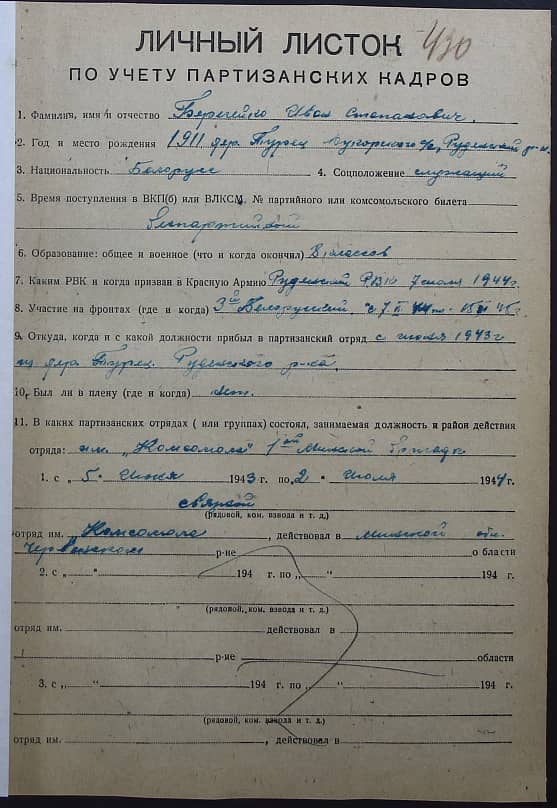 ЛИЧНЫЙ ЛИСТОК 430
ПО УЧЕТУ ПАРТИЗАНСКИХ КАДРОВ
1. Фамилия, имя и отчество Иван Степанович.
2. Год и место рождения 1911 дер. Турец с/с, Руденский р-н.
3. Национальность Белорусс 4. Соцположение служащий
5. Время поступления в ВКП(б) или ВЛКСМ, № партийного или комсомольского билета
Беспартийный
6. Образование: общее и военное (что и когда окончил) 8 классов
7. Каким РВК и когда призван в Красную Армию Руденский РВК 7 июля 1944 г.
8. Участие на фронтах (где и когда) 3ий Белорусский, с 7.
9. Откуда, когда и с какой должности прибыл в партизанский отряд с июня 1943 г
из дер. Турец Руденского р-на.
10. Был ли в плену (где и когда) нет.
11. В каких партизанских отрядах ( или группах) состоял, занимаемая должность и район действия
отряда: им. „Комсомола" 1ой Минской бригады
1. с „ 5 " июня 1943 г. по „2 " июля 1944 г.
связной
(рядовой, ком. взвода и т. д,)
отряд им. „Комсомола , действовал в минской обл.
Червенском р-не области
2. с „ " 194 г. по „ " 194 г.
(рядовой, ком. взвода и т. д.)
отряд им. действовал в
р-не области
3. с „ " 194 г. по „ " 194 г.
(рядовой, ком. взвода и т. д.)
отряд им. , действовал в